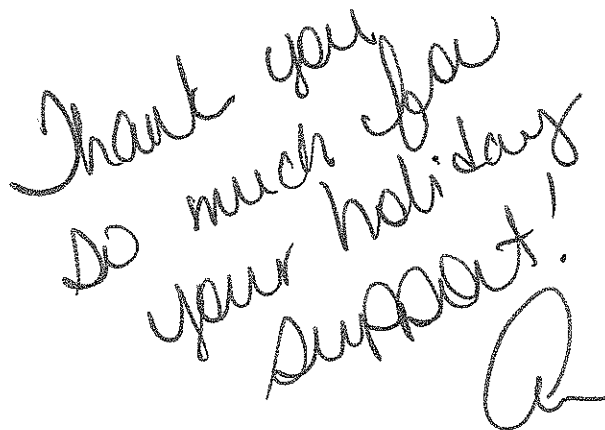 Thank you
so much for
your holiday
support!